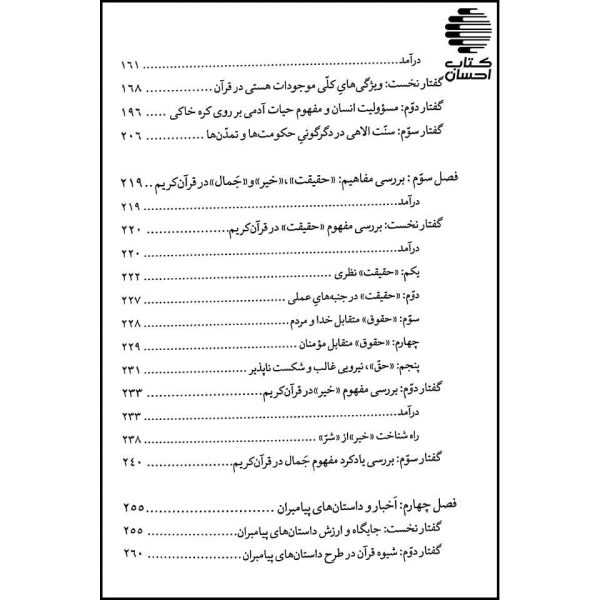 کتاب
احسان
درآمد ........ ۱۶۱
گفتار نخست: ویژگی‌هایِ کلّی موجودات هستی در قرآن ........ ۱۶۸
گفتار دوّم: مسؤولیت انسان و مفهوم حیات آدمی بر روی کره خاکی ..... ۱۹۶
گفتار سوّم: سنّت الاهی در دگرگونیِ حکومت‌ها و تمدّن‌ها ........ ۲۰۶
فصل سوّم: بررسی مفاهیم: «حقیقت»، «خیر» و «جَمال» در قرآن کریم .. ۲۱۹
درآمد ........ ۲۱۹
گفتار نخست: بررسی مفهوم «حقیقت» در قرآن کریم ........ ۲۲۰
درآمد ........ ۲۲۰
یکم: «حقیقت» نظری ........ ۲۲۲
دوّم: «حقیقت» در جنبه‌هایِ عملی ........ ۲۲۷
سوّم: «حقوق» متقابل خدا و مردم ........ ۲۲۸
چهارم: «حقوق» متقابل مؤمنان ........ ۲۲۹
پنجم: «حقّ»، نیرویی غالب و شکست ناپذیر ........ ۲۳۱
گفتار دوّم: بررسی مفهوم «خیر» در قرآن کریم ........ ۲۳۳
درآمد ........ ۲۳۳
راه شناخت «خیر» از «شرّ» ........ ۲۳۸
گفتار سوّم: بررسی یادکرد مفهوم جَمال در قرآن کریم ........ ۲۴۰
فصل چهارم: اَخبار و داستان‌های پیامبران ........ ۲۵۵
گفتار نخست: جایگاه و ارزش داستان‌های پیامبران ........ ۲۵۵
گفتار دوّم: شیوه قرآن در طرح داستان‌های پیامبران ........ ۲۶۰